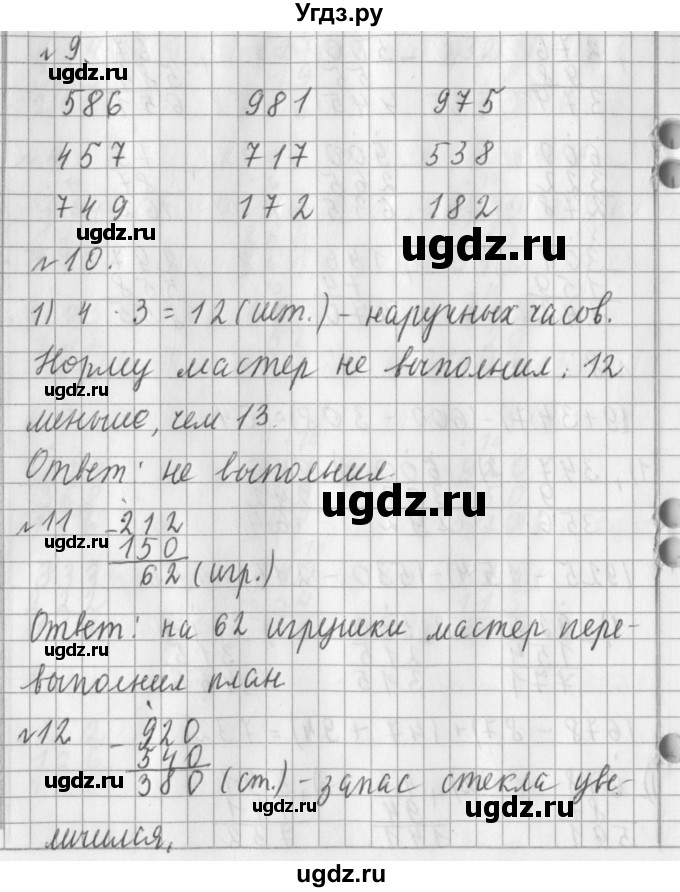 Угдз.ру
№9.
ugdz.ru
586 981 975
457 717 538
749 172 182
ugdz.ru ugdz.ru
№10.
1) 4 · 3 = 12 (шт.) – наручных часов.
Норму мастер не выполнил. 12
ugdz.ru
меньше, чем 13.
Ответ: не выполнил.
ugdz.ru
№11 -212
150
ugdz.ru
62 (игр.)
Ответ: на 62 игрушки мастер пере-
ugdz.ru
выполнил план
№12 - 920
540
ugdz.ru 380 (ст.) – запас стекла уве-
ugdz.ru ugdz.ru
личился.
ugdz.ru